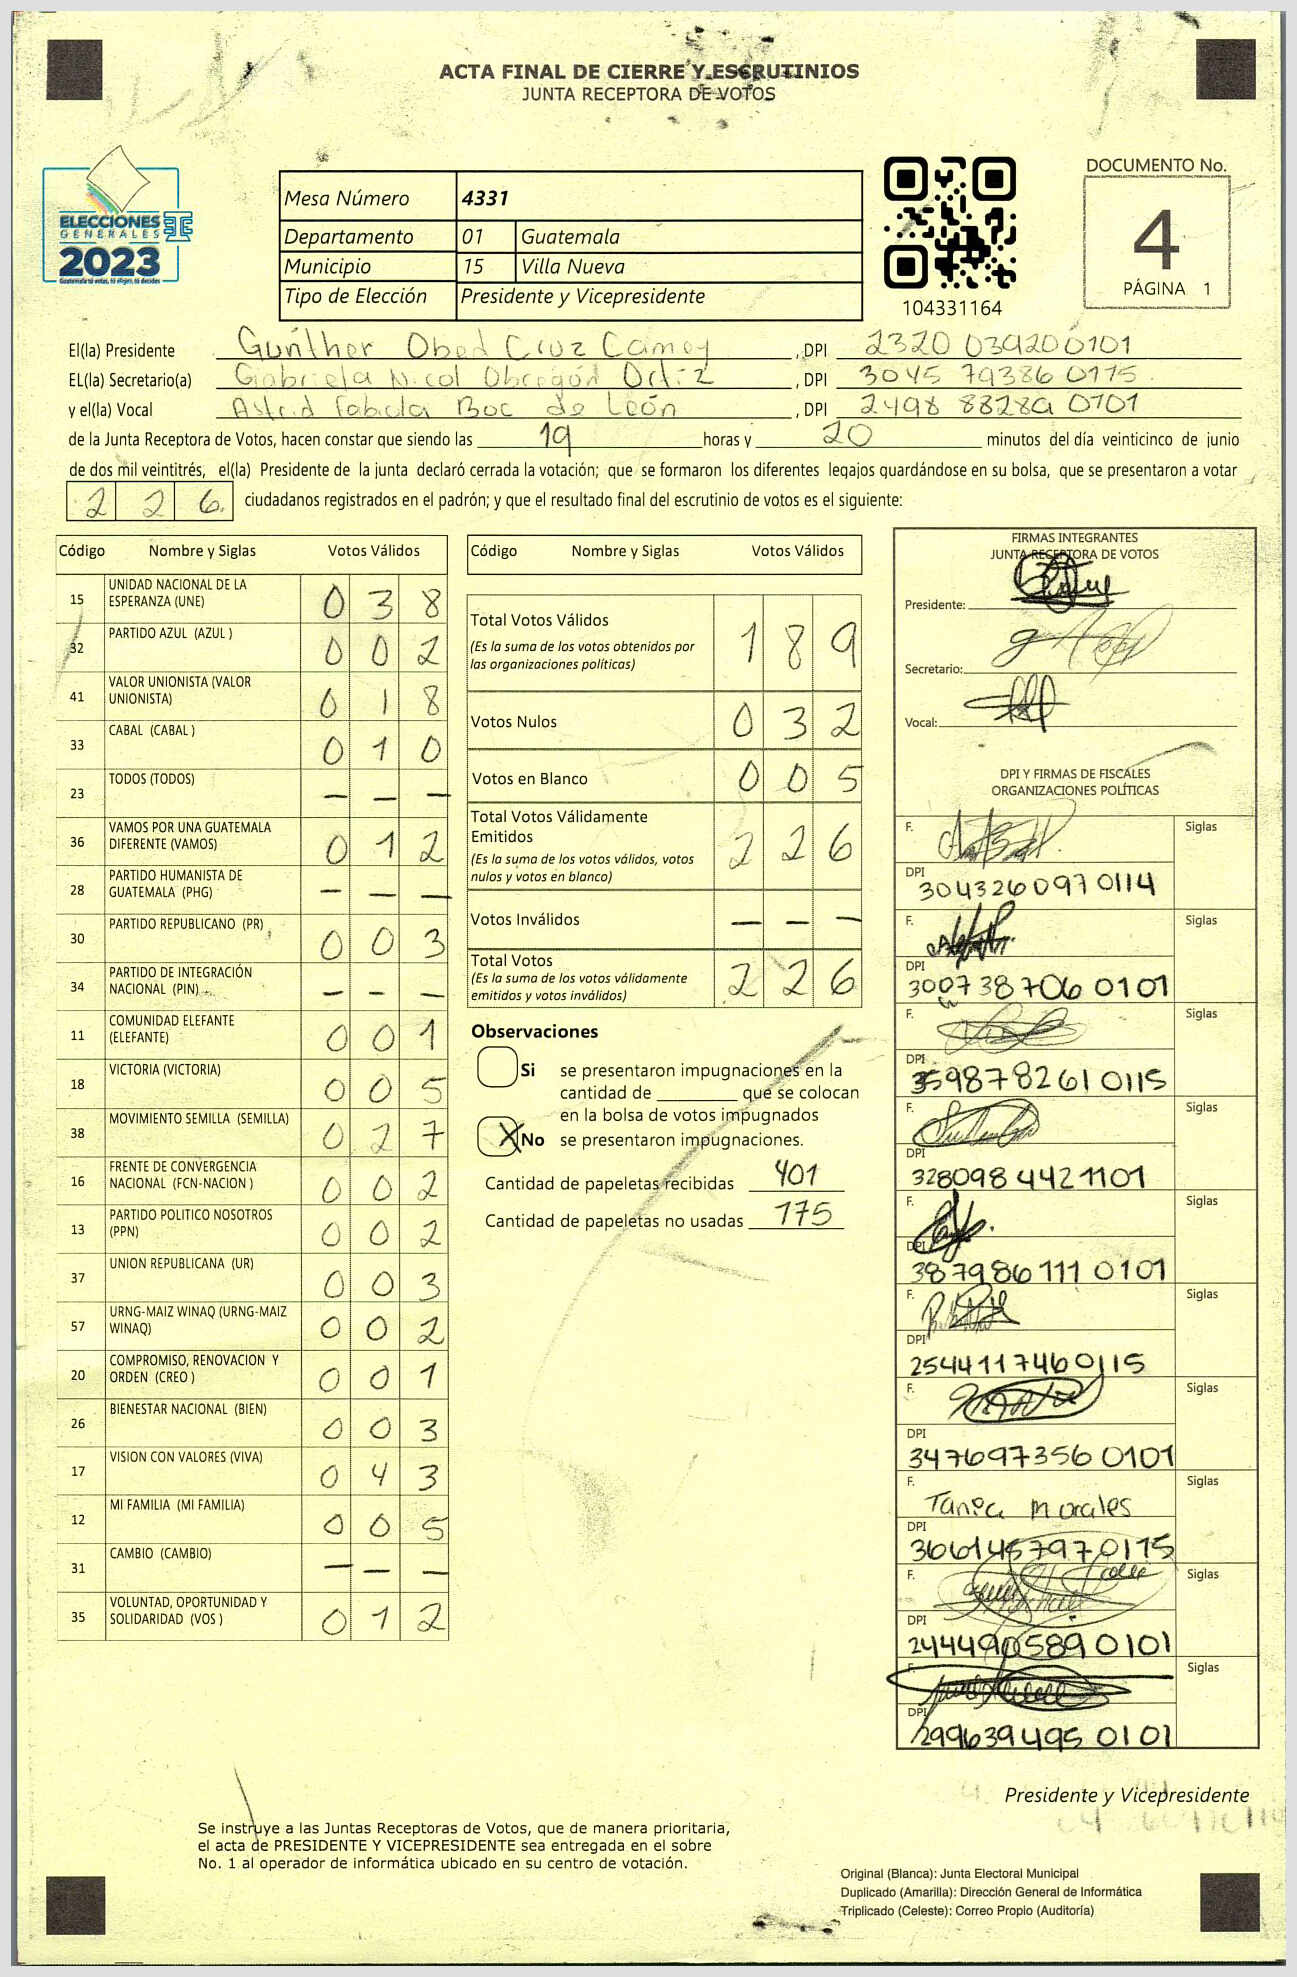 ACTA FINAL DE CIERRE Y ESCRUTINIOS
JUNTA RECEPTORA DE VOTOS
ELECCIONES
GENERALES
2023
Guatemala tú votas, tú eliges, tú decides
Mesa Número 4331
Departamento 01 Guatemala
Municipio 15 Villa Nueva
Tipo de Elección Presidente y Vicepresidente
104331164
DOCUMENTO No.
4
PÁGINA 1
El(la) Presidente Günther Obed Cruz Camey, DPI 2320 039200101
EL(la) Secretario(a) Gabriela Nicol Obregón Ortiz, DPI 3045 79386 0115
y el(la) Vocal Astrid Fabiola Boc de León, DPI 2498 88289 0101
de la Junta Receptora de Votos, hacen constar que siendo las 19 horas y 20 minutos del día veinticinco de junio
de dos mil veintitrés, el(la) Presidente de la junta declaró cerrada la votación; que se formaron los diferentes legajos quardándose en su bolsa, que se presentaron a votar
2 2 6 ciudadanos registrados en el padrón; y que el resultado final del escrutinio de votos es el siguiente:
Código Nombre y Siglas Votos Válidos
15 UNIDAD NACIONAL DE LA ESPERANZA (UNE) 0 3 8
32 PARTIDO AZUL (AZUL ) 0 0 2
41 VALOR UNIONISTA (VALOR UNIONISTA) 0 1 8
33 CABAL (CABAL ) 0 1 0
23 TODOS (TODOS) — — —
36 VAMOS POR UNA GUATEMALA DIFERENTE (VAMOS) 0 1 2
28 PARTIDO HUMANISTA DE GUATEMALA (PHG) — — —
30 PARTIDO REPUBLICANO (PR) 0 0 3
34 PARTIDO DE INTEGRACIÓN NACIONAL (PIN) — — —
11 COMUNIDAD ELEFANTE (ELEFANTE) 0 0 1
18 VICTORIA (VICTORIA) 0 0 5
38 MOVIMIENTO SEMILLA (SEMILLA) 0 2 7
16 FRENTE DE CONVERGENCIA NACIONAL (FCN-NACION ) 0 0 2
13 PARTIDO POLITICO NOSOTROS (PPN) 0 0 2
37 UNION REPUBLICANA (UR) 0 0 3
57 URNG-MAIZ WINAQ (URNG-MAIZ WINAQ) 0 0 2
20 COMPROMISO, RENOVACION Y ORDEN (CREO ) 0 0 1
26 BIENESTAR NACIONAL (BIEN) 0 0 3
17 VISION CON VALORES (VIVA) 0 4 3
12 MI FAMILIA (MI FAMILIA) 0 0 5
31 CAMBIO (CAMBIO) — — —
35 VOLUNTAD, OPORTUNIDAD Y SOLIDARIDAD (VOS ) 0 1 2
Código Nombre y Siglas Votos Válidos
Total Votos Válidos 1 8 9
(Es la suma de los votos obtenidos por
las organizaciones políticas)
Votos Nulos 0 3 2
Votos en Blanco 0 0 5
Total Votos Válidamente
Emitidos 2 2 6
(Es la suma de los votos válidos, votos
nulos y votos en blanco)
Votos Inválidos — — —
Total Votos 2 2 6
(Es la suma de los votos válidamente
emitidos y votos inválidos)
Observaciones
Si se presentaron impugnaciones en la
cantidad de ________ que se colocan
en la bolsa de votos impugnados
X No se presentaron impugnaciones.
Cantidad de papeletas recibidas 401
Cantidad de papeletas no usadas 175
FIRMAS INTEGRANTES
JUNTA RECEPTORA DE VOTOS
Presidente:
Secretario:
Vocal:
DPI Y FIRMAS DE FISCALES
ORGANIZACIONES POLÍTICAS
F. Siglas
DPI
304326097 0114
F. Siglas
DPI
300738706 0101
F. Siglas
DPI
598782610115
F. Siglas
DPI
328098 442 1101
F. Siglas
DPI
387986111 0101
F. Siglas
DPI
2544117460115
F. Siglas
DPI
347697356 0101
F. Tania Morales Siglas
DPI
3661457970115
F. Siglas
DPI
244490589 0101
F. Siglas
DPI
299639495 0101
Presidente y Vicepresidente
Se instruye a las Juntas Receptoras de Votos, que de manera prioritaria,
el acta de PRESIDENTE Y VICEPRESIDENTE sea entregada en el sobre
No. 1 al operador de informática ubicado en su centro de votación.
Original (Blanca): Junta Electoral Municipal
Duplicado (Amarilla): Dirección General de Informática
Triplicado (Celeste): Correo Propio (Auditoría)